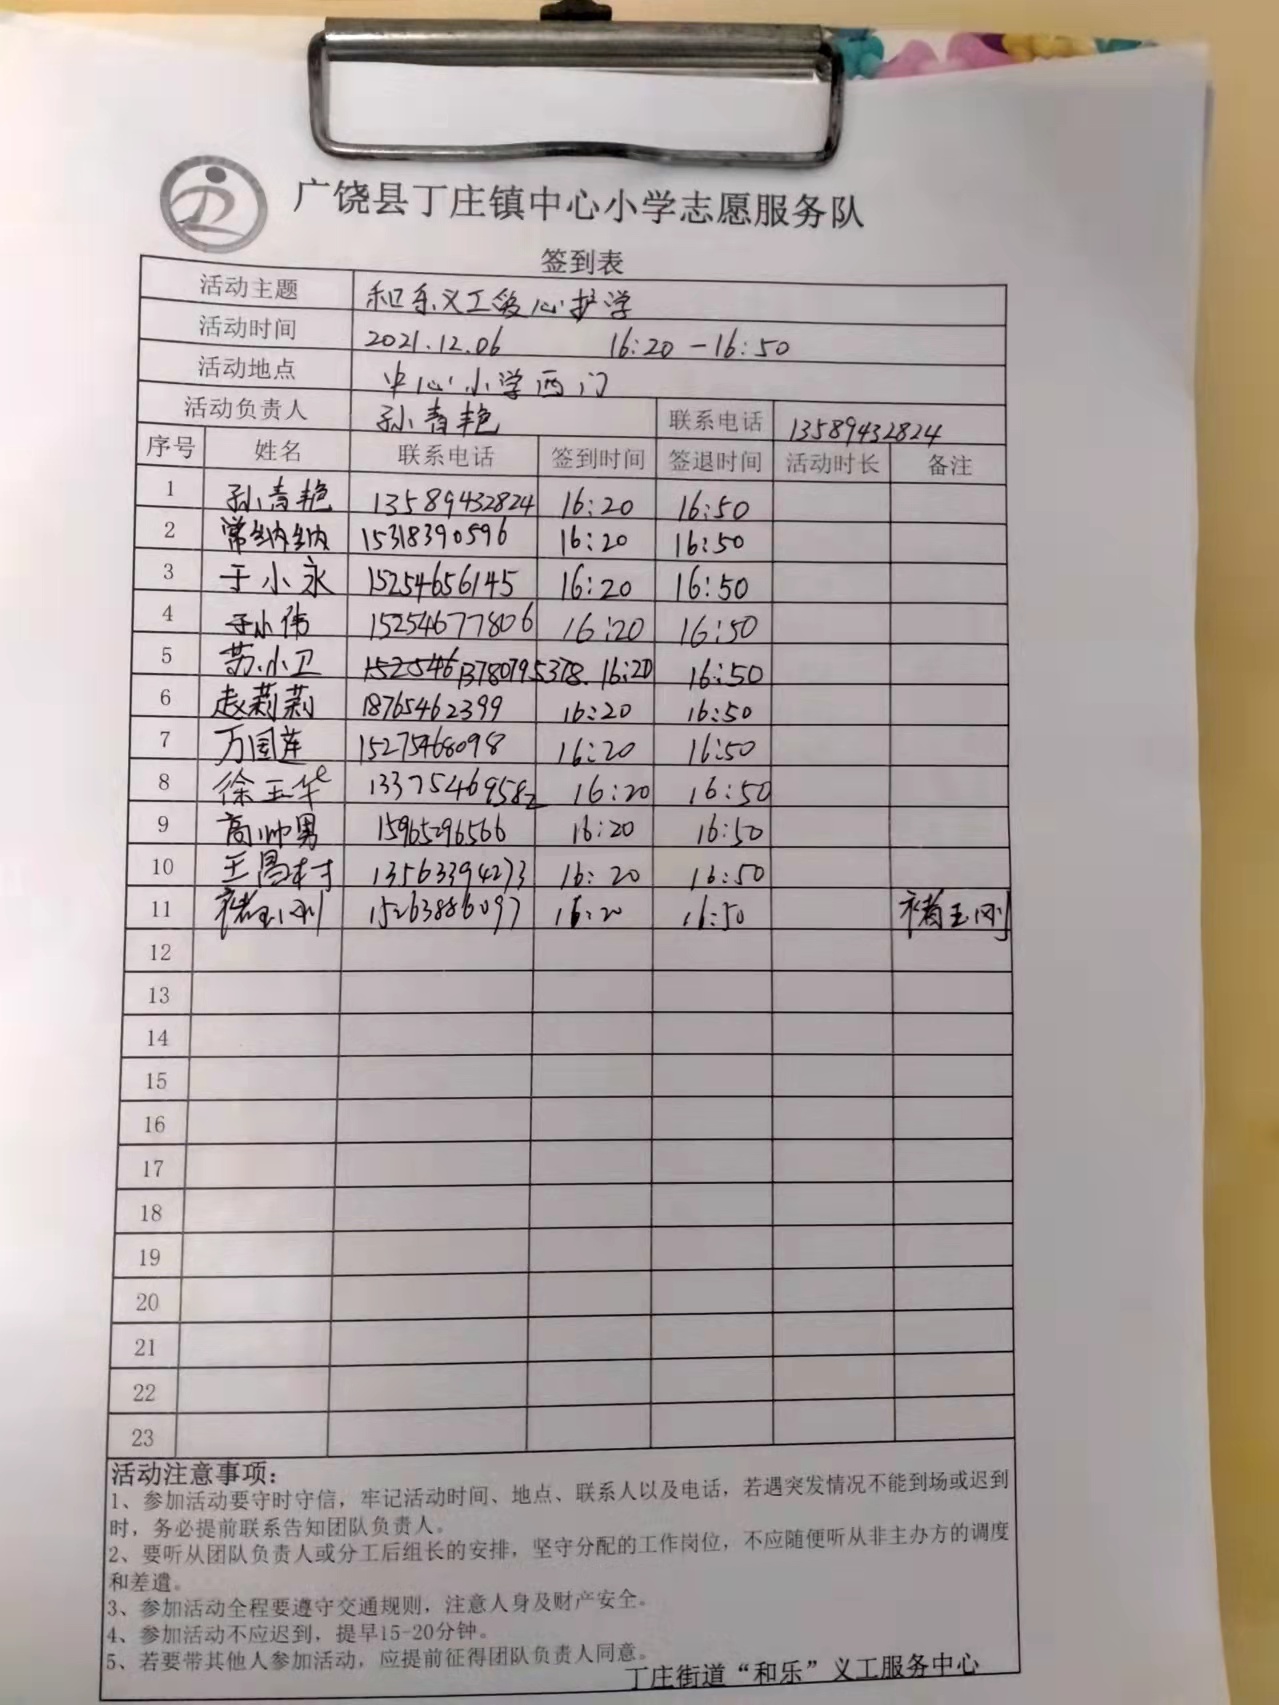 广饶县丁庄镇中心小学志愿服务队
签到表
活动主题 和乐义工爱心护学
活动时间 2021.12.06 16:20-16:50
活动地点 中心小学西门
活动负责人 孙青艳 联系电话 13589432824
序号 姓名 联系电话 签到时间 签退时间 活动时长 备注
1 孙青艳 13589432824 16:20 16:50
2 常纳纳 15318390596 16:20 16:50
3 于小永 15254656145 16:20 16:50
4 于小伟 15254677806 16:20 16:50
5 苏小卫 13780795378. 16:20 16:50
6 赵莉莉 18765462399 16:20 16:50
7 万国莲 15275468098 16:20 16:50
8 徐玉华 16:20 16:50
9 高帅男 15965296566 16:20 16:50
10 王昌村 13563394273 16:20 16:50
11 褚玉刚 15263886097 16:20 16:50 褚玉刚
12
13
14
15
16
17
18
19
20
21
22
23
活动注意事项：
1、参加活动要守时守信，牢记活动时间、地点、联系人以及电话，若遇突发情况不能到场或迟到
时，务必提前联系告知团队负责人。
2、要听从团队负责人或分工后组长的安排，坚守分配的工作岗位，不应随便听从非主办方的调度
和差遣。
3、参加活动全程要遵守交通规则，注意人身及财产安全。
4、参加活动不应迟到，提早15-20分钟。
5、若要带其他人参加活动，应提前征得团队负责人同意。
丁庄街道“和乐”义工服务中心